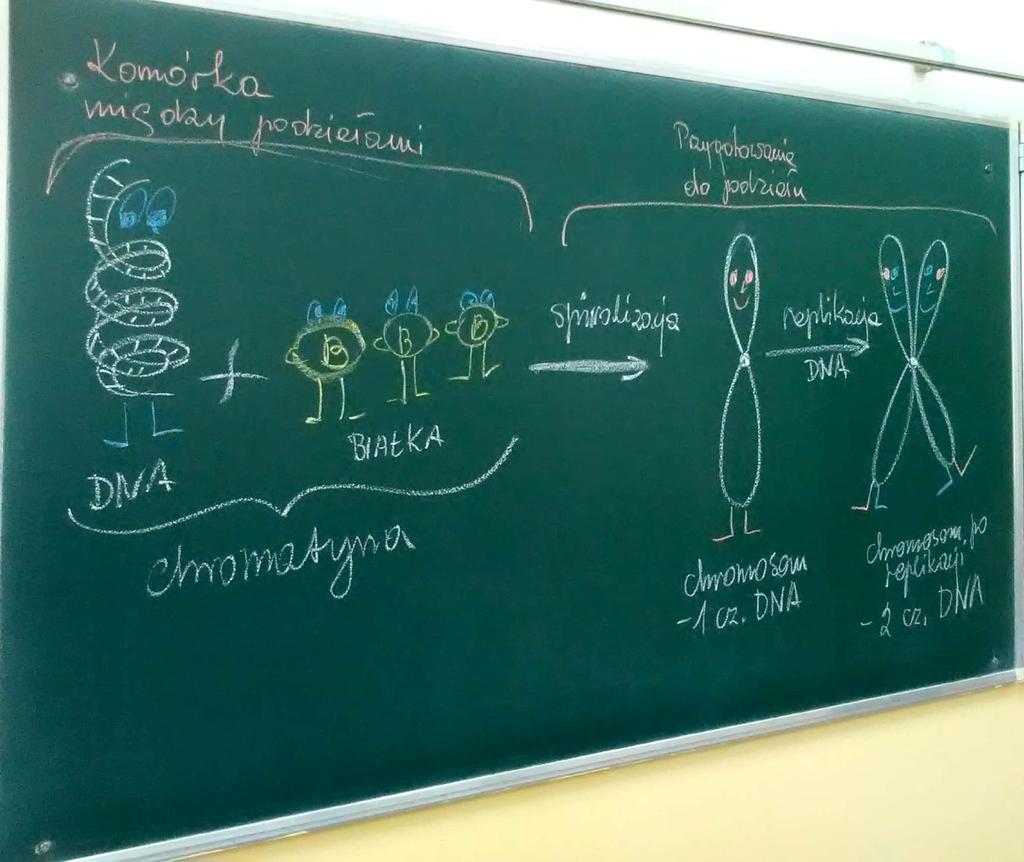 Komórka
między podziałami
Przygotowanie
do podziału
B
B
B
spiralizacja
replikacja
DNA
BIAŁKA
DNA
chromatyna
chromosom
-1 cz. DNA
chromosom po
replikacji
-2 cz. DNA